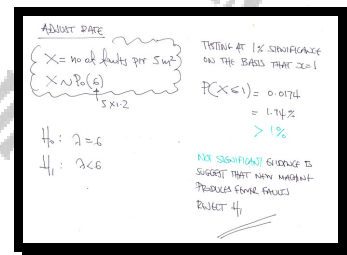 ADJUST RATE
X = no of faults per 5m²
X ~ Po(6)
5 × 1.2
H₀: λ = 6
H₁: λ < 6
TESTING AT 1% SIGNIFICANCE
ON THE BASIS THAT x = 1
P(X ≤ 1) = 0.0174
= 1.74%
> 1%
NOT SIGNIFICANT EVIDENCE TO
SUGGEST THAT NEW MACHINE
PRODUCES FEWER FAULTS
REJECT H₁